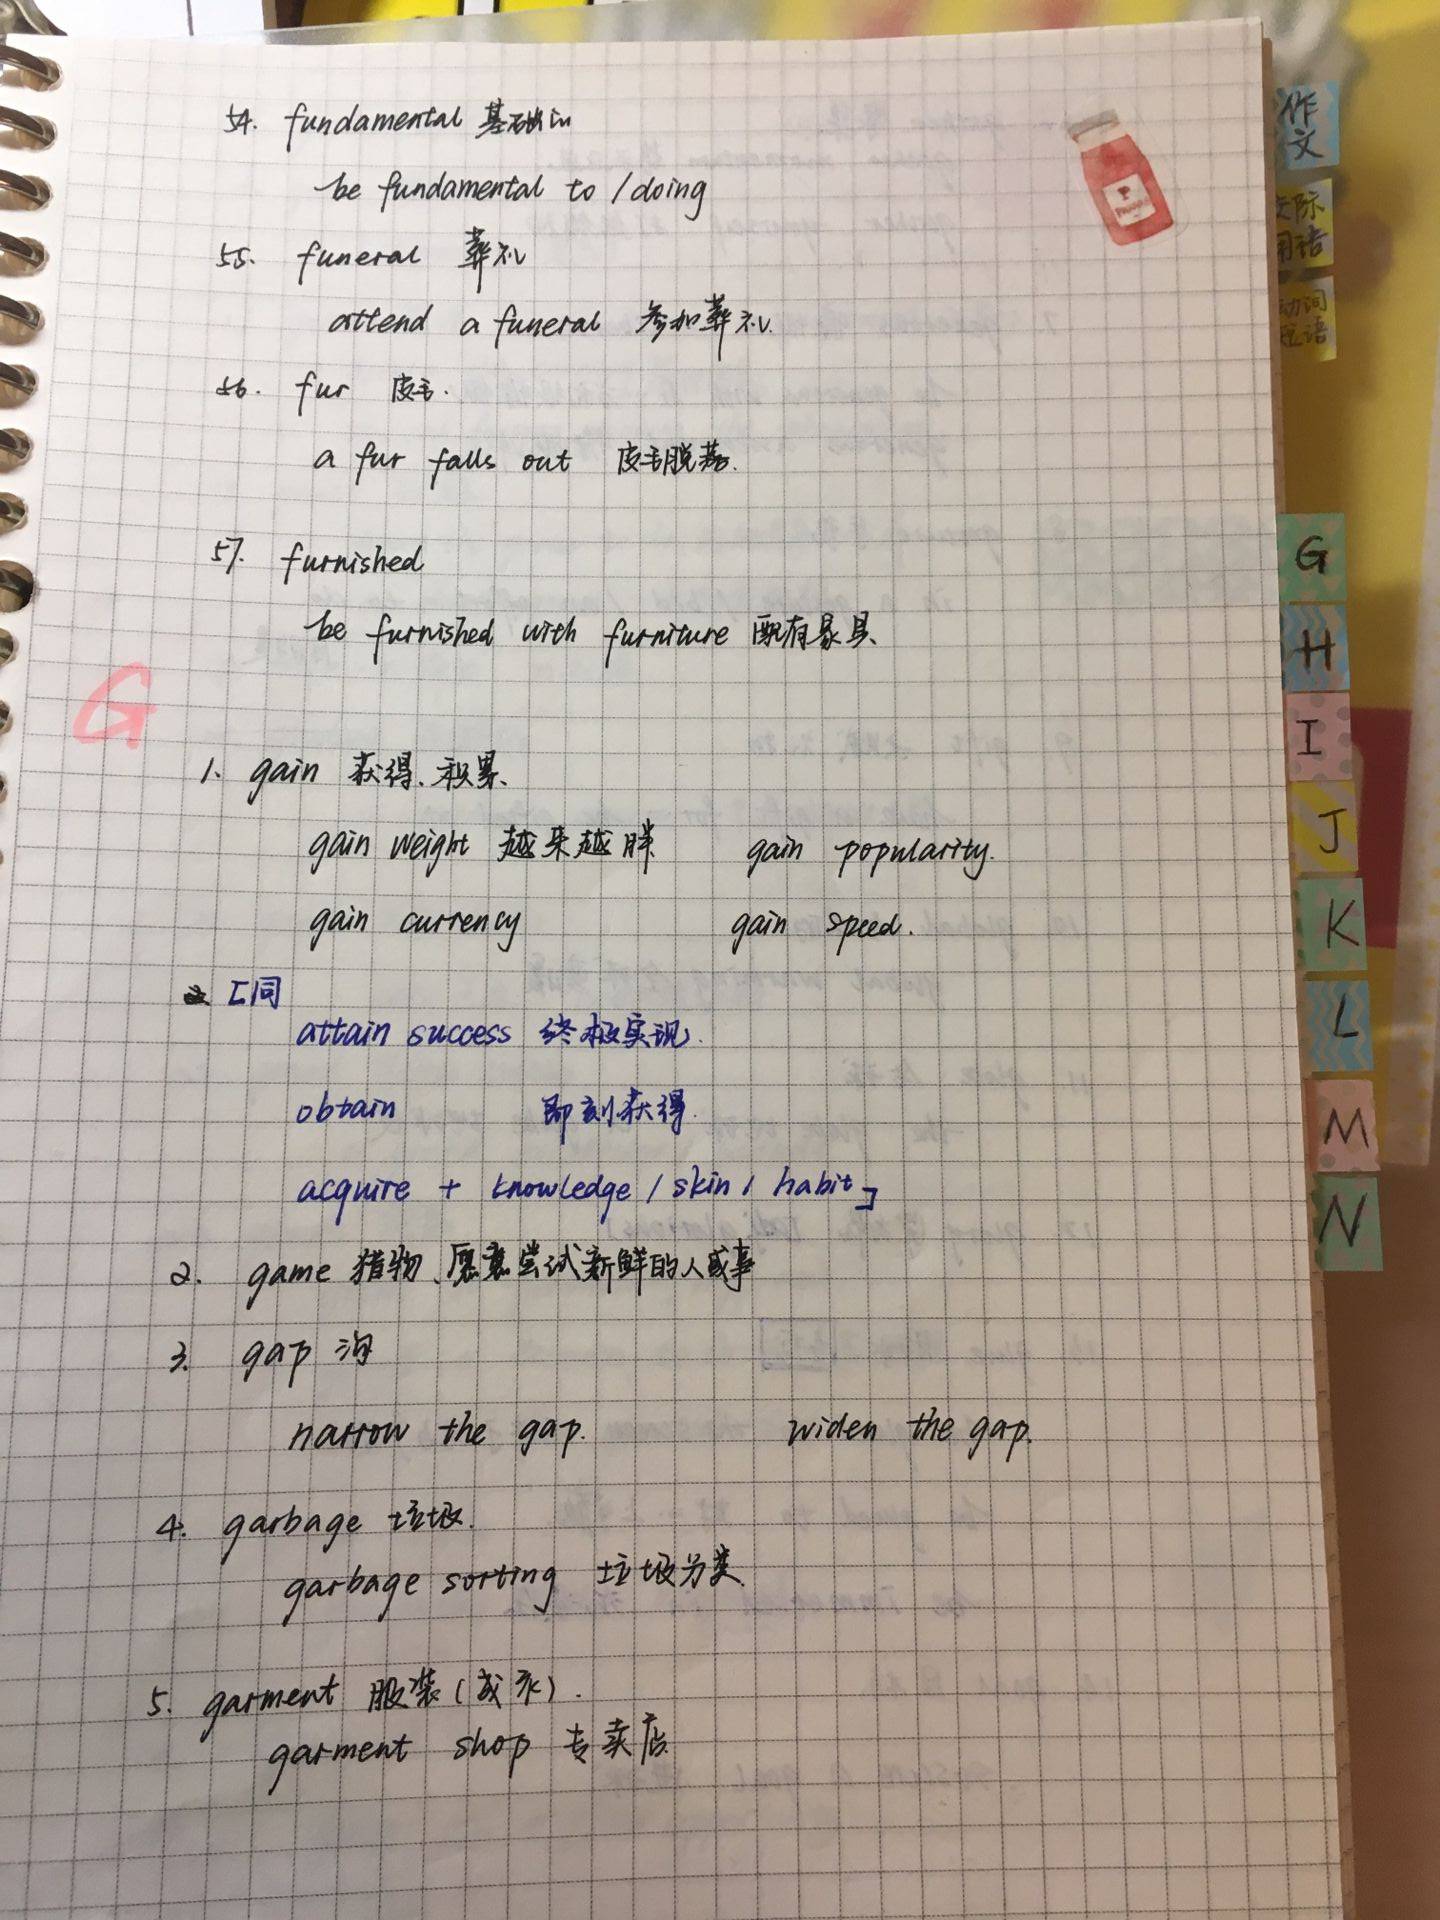 54. fundamental 基础的
be fundamental to / doing
55. funeral 葬礼
attend a funeral 参加葬礼.
56. fur 皮毛.
a fur falls out 皮毛脱落.
57. furnished
be furnished with furniture 配有家具.
G
1. gain 获得、积累.
gain weight 越来越胖 gain popularity.
gain currency gain speed.
[同
attain success 终极实现.
obtain 即刻获得.
acquire + knowledge / skin / habit]
2. game 猎物、愿意尝试新鲜的人或事
3. gap 沟
narrow the gap. widen the gap.
4. garbage 垃圾.
garbage sorting 垃圾分类.
5. garment 服装(成衣).
garment shop 专卖店.
作文
交际用语
动词短语
G
H
I
J
K
L
M
N